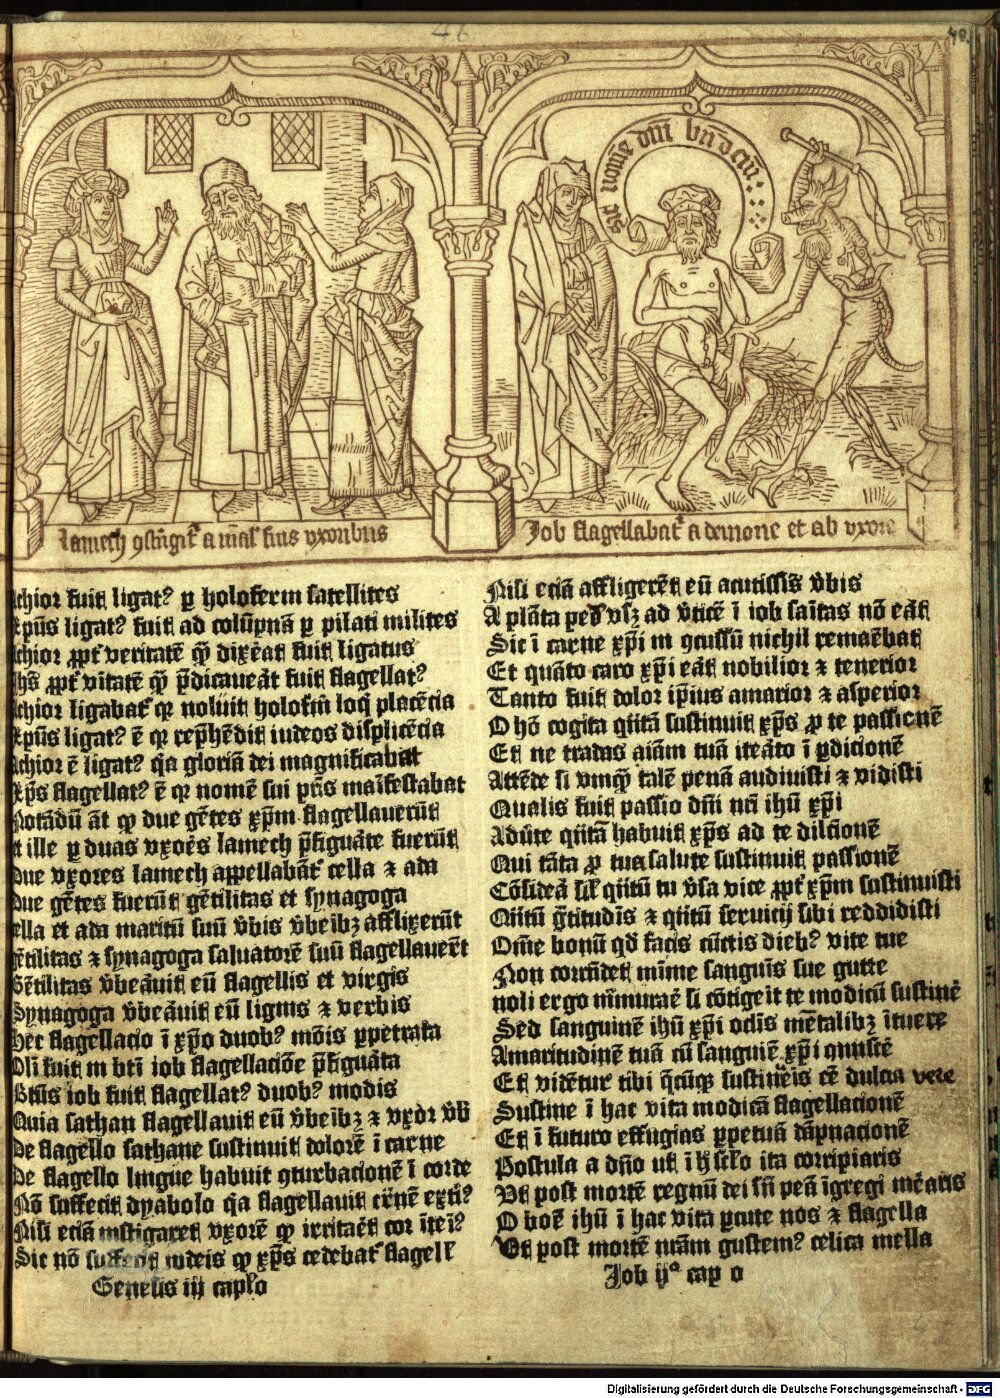 46
40.
sit nomē dñi bñdcũ:
Lamech ↄstrīgit᷑ a mal᷑ suis vxoribus
Job flagellabat᷑ a demone et ab vxore
Achior fuit ligatꝰ ꝑ holoferm satellites
Xp̃us ligatꝰ fuit ad colūpnā ꝑ pilati milites
Achior ꝓpt᷑ veritatē qᷓ dixerat fuit ligatus
Jhs̄ ꝓpt᷑ v̄itatē qᷓ p̄dicauerat fuit flagellatꝰ
Achior ligabat᷑ qꝛ noluit holof̄ni loq̄ placētia
Xp̃us ligatꝰ ē qꝛ rep̄hēdit iudeos displicētia
Achior ē ligatꝰ q̄a gloriā dei magnificabat
Xp̃s flagellatꝰ ē qꝛ nomē sui pr̄is māifestabat
Notādū āt ꝙ due gētes xp̄m flagellauerūt
Et ille ꝑ duas vxores lamech p̄figuāte fuerūt
Due vxores lamech appellabāt᷑ cella ⁊ ada
Due gētes fuerūt gētilitas et synagoga
Cella et ada maritū suū v̄bis v̄beibꝫ afflixerūt
Gētilitas ⁊ synagoga saluatorē suū flagellauer̄t
Gētilitas v̄beāuit eū flagellis et virgis
Synagoga v̄beāuit eū lignis ⁊ verbis
Hec flagellacio ī xp̄o duobꝰ mōis ꝑpetrata
Oli fuit in bt̄i iob flagellaciōe p̄figuāta
Btūs iob fuit flagellatꝰ duobꝰ modis
Quia sathan flagellauit eū v̄beibꝫ ⁊ vxor v̄b̄
De flagello sathane sustinuit dolorē ī carne
De flagello lingue habuit ↄturbacionē ī corde
Nō suffecit dyabolo q̄a flagellauit c̄rnē ext̄ꝰ
Nisi eciā instigaret vxorē ꝙ irritar̄et cor īteiꝰ
Sic nō suffecit iudeis ꝙ xp̄s cedebat᷑ flagell᷑
Genesis iiij caplo
Nisi eciā affligerēt eū acutissīs v̄bis
A plāta ped᷑ vsꝫ ad v̄ticē ī iob saītas nō eāt
Sic ī carne xp̄i in ↄcussū nichil remaēbat
Et quāto caro xp̄i eāt nobilior ⁊ tenerior
Tanto fuit dolor ip̄ius amarior ⁊ asperior
O hō cogita q̄ntā sustinuit xp̄s ꝓ te passionē
Et ne tradas aīam tuā iteāto ī ꝑdicionē
Attēde si vmqᷓ talē penā audiuisti ⁊ vidisti
Qualis fuit passio dñi nr̄i ihū xp̄i
Adūte q̄ntā habuit xp̄s ad te dilc̄ionē
Qui tāta ꝓ tua salute sustinuit passionē
Cōsideā sil᷑ q̄ntū tu v̄sa vice ꝓpt᷑ xp̄m sustinuisti
Q̄ntū ḡtitudīs ⁊ q̄ntū seruicij sibi reddidisti
Om̄e bonū qd᷑ facis cūctis diebꝰ vite tue
Non corrn̄det mīme sanguīs sue gutte
noli ergo m̄murare si cōtigeit te modicū sustinē
Sed sanguinē ihū xp̄i oclīs mētalibꝫ ītuere
Amaritudinē tuā cū sanguiē xp̄i ↄmistē
Et vidētur tibi q̄cūqꝫ sustin᷑eis eē dulcia vere
Sustine ī hac vita modicā flagellacionē
Et ī futuro effugias ꝑpetuā dāpnacionē
Postula a dño ut ī h᷑ sc̄lo ita corripiaris
Vt post mortē regnū dei sn̄ pena īgregi meāris
O boē ihū ī hac vita ꝑcute nos ⁊ flagella
Vt post mortē nr̄am gustemꝰ celica mella
Job ijº cap o
Digitalisierung gefördert durch die Deutsche Forschungsgemeinschaft - DFG